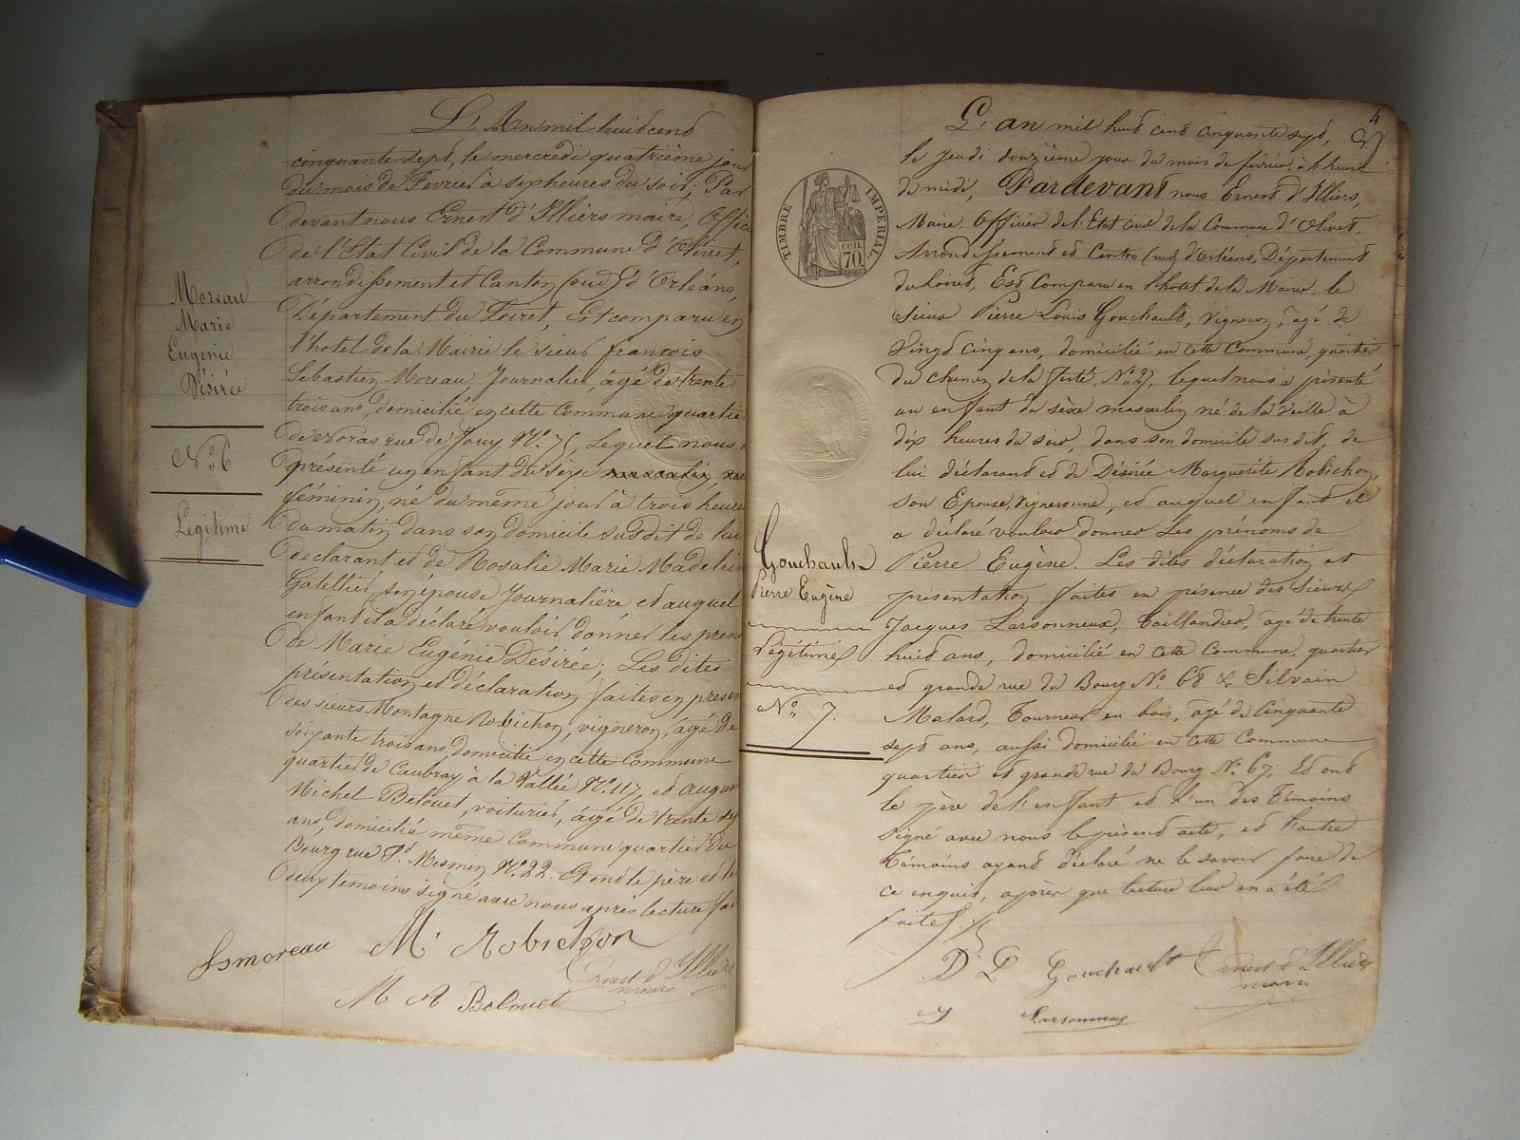 L'An mil huit cent
cinquante sept, le mercredi quatrième jour
du mois de Fevrier à six heures du soir; Par
devant nous Ernest d'Illiers maire, Offic
de l'Etat Civil de la Commune d'Olivet,
arrondissement et Canton (sud) d'Orléans
Département du Loiret, Est comparu en
l'hotel de la Mairie le sieur françois
Sébastien Moreau, Journalier, âgé de trente
trois ans, domicilié en cette Commune quartier
de rue de Jouy N°. Lequel nous a
présenté un enfant de sexe masculin, née
féminin, né du même jour à trois heures
du matin dans son domicile susdit de lui
déclarant et de Rosalie Marie Madelei
son épouse Journalière et auquel
enfant il a déclaré vouloir donner les prén
de Marie Eugénie Désirée; Les dites
présentation et déclaration faites en prése
des sieurs Montagne Robichon, vigneron, âgé de
soixante trois ans domicilié en cette Commune
quartier de Caubray à la Vallée N°. 117, et
Michel Belouet, voiturier, âgé de trente
ans, domicilié même Commune quartier du
Bourg rue St. Mesmin N°. 22. Et ont le père et les
deux temoins signé avec nous après lecture fai
Moreau
Marie
Eugénie
Désirée
N° 6
Légitime
fsmoreau M. Robichon
Ernest d'Illiers
maire
M A Belouet
4
L'an mil huit cent cinquante sept,
le jeudi douzième jour du mois de février à heure
de midi, Pardevant nous Ernest d'Illiers,
Maire Officier de l'Etat Civil de la Commune d'Olivet,
Arrondissement et Canton (sud) d'Orléans, Département
du Loiret, Est Comparu en l'hotel de la Mairie le
Sieur Pierre Louis Gouchault, vigneron, âgé de
Vingt cinq ans, domicilié en cette Commune, quartier
du chemin de la ferté, N° 27, lequel nous a présenté
un enfant du sèxe masculin né de la veille à
dix heures du soir, dans son domicile sus dit, de
lui déclarant et de Désirée Marguerite Robichon,
son Epouse, vigneronne, et auquel enfant il
a déclaré vouloir donner Les prénoms de
Pierre Eugène. Les dites déclaration et
présentation faites en présence des Sieurs
Jacques Larsonneux, Taillandier, âgé de trente
huit ans, domicilié en cette Commune quartier
et grande rue du Bourg N°. 68 & Silvain
Malard, Tourneur en bois, âgé de Cinquante
sept ans, aussi domicilié en cette Commune
quartier et grande rue du Bourg N°. 67. Et ont
le père de l'enfant et l'un des Témoins
Signé avec nous le présent acte, et l'autre
Témoins ayant déclaré ne le savoir faire de
ce enquis, après que lecture leur en a été
faite.
TIMBRE IMPERIAL
CEN. 70
Gouchault
Pierre Eugène
Légitime
N° 7.
P L Gouchault Ernest d'Illiers
maire
Larsonneux